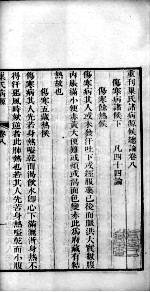 重刊巢氏諸病源候總論卷八
傷寒病諸候下 凡四十四論
傷寒餘熱候
傷寒病其人或未發汗吐下或經服藥已後而脉洪大實數腹
内脹滿小便赤黄大便難或煩或渴面色變赤此爲腑臟有結
熱故也
傷寒五臟熱候
傷寒病其人先苦身熱嗌乾而渴飲水即心下滿洒淅身熱不
得汗惡風時欬逆者此肺熱也若其人先苦身熱嗌乾而小腹
巢氏病源 卷八